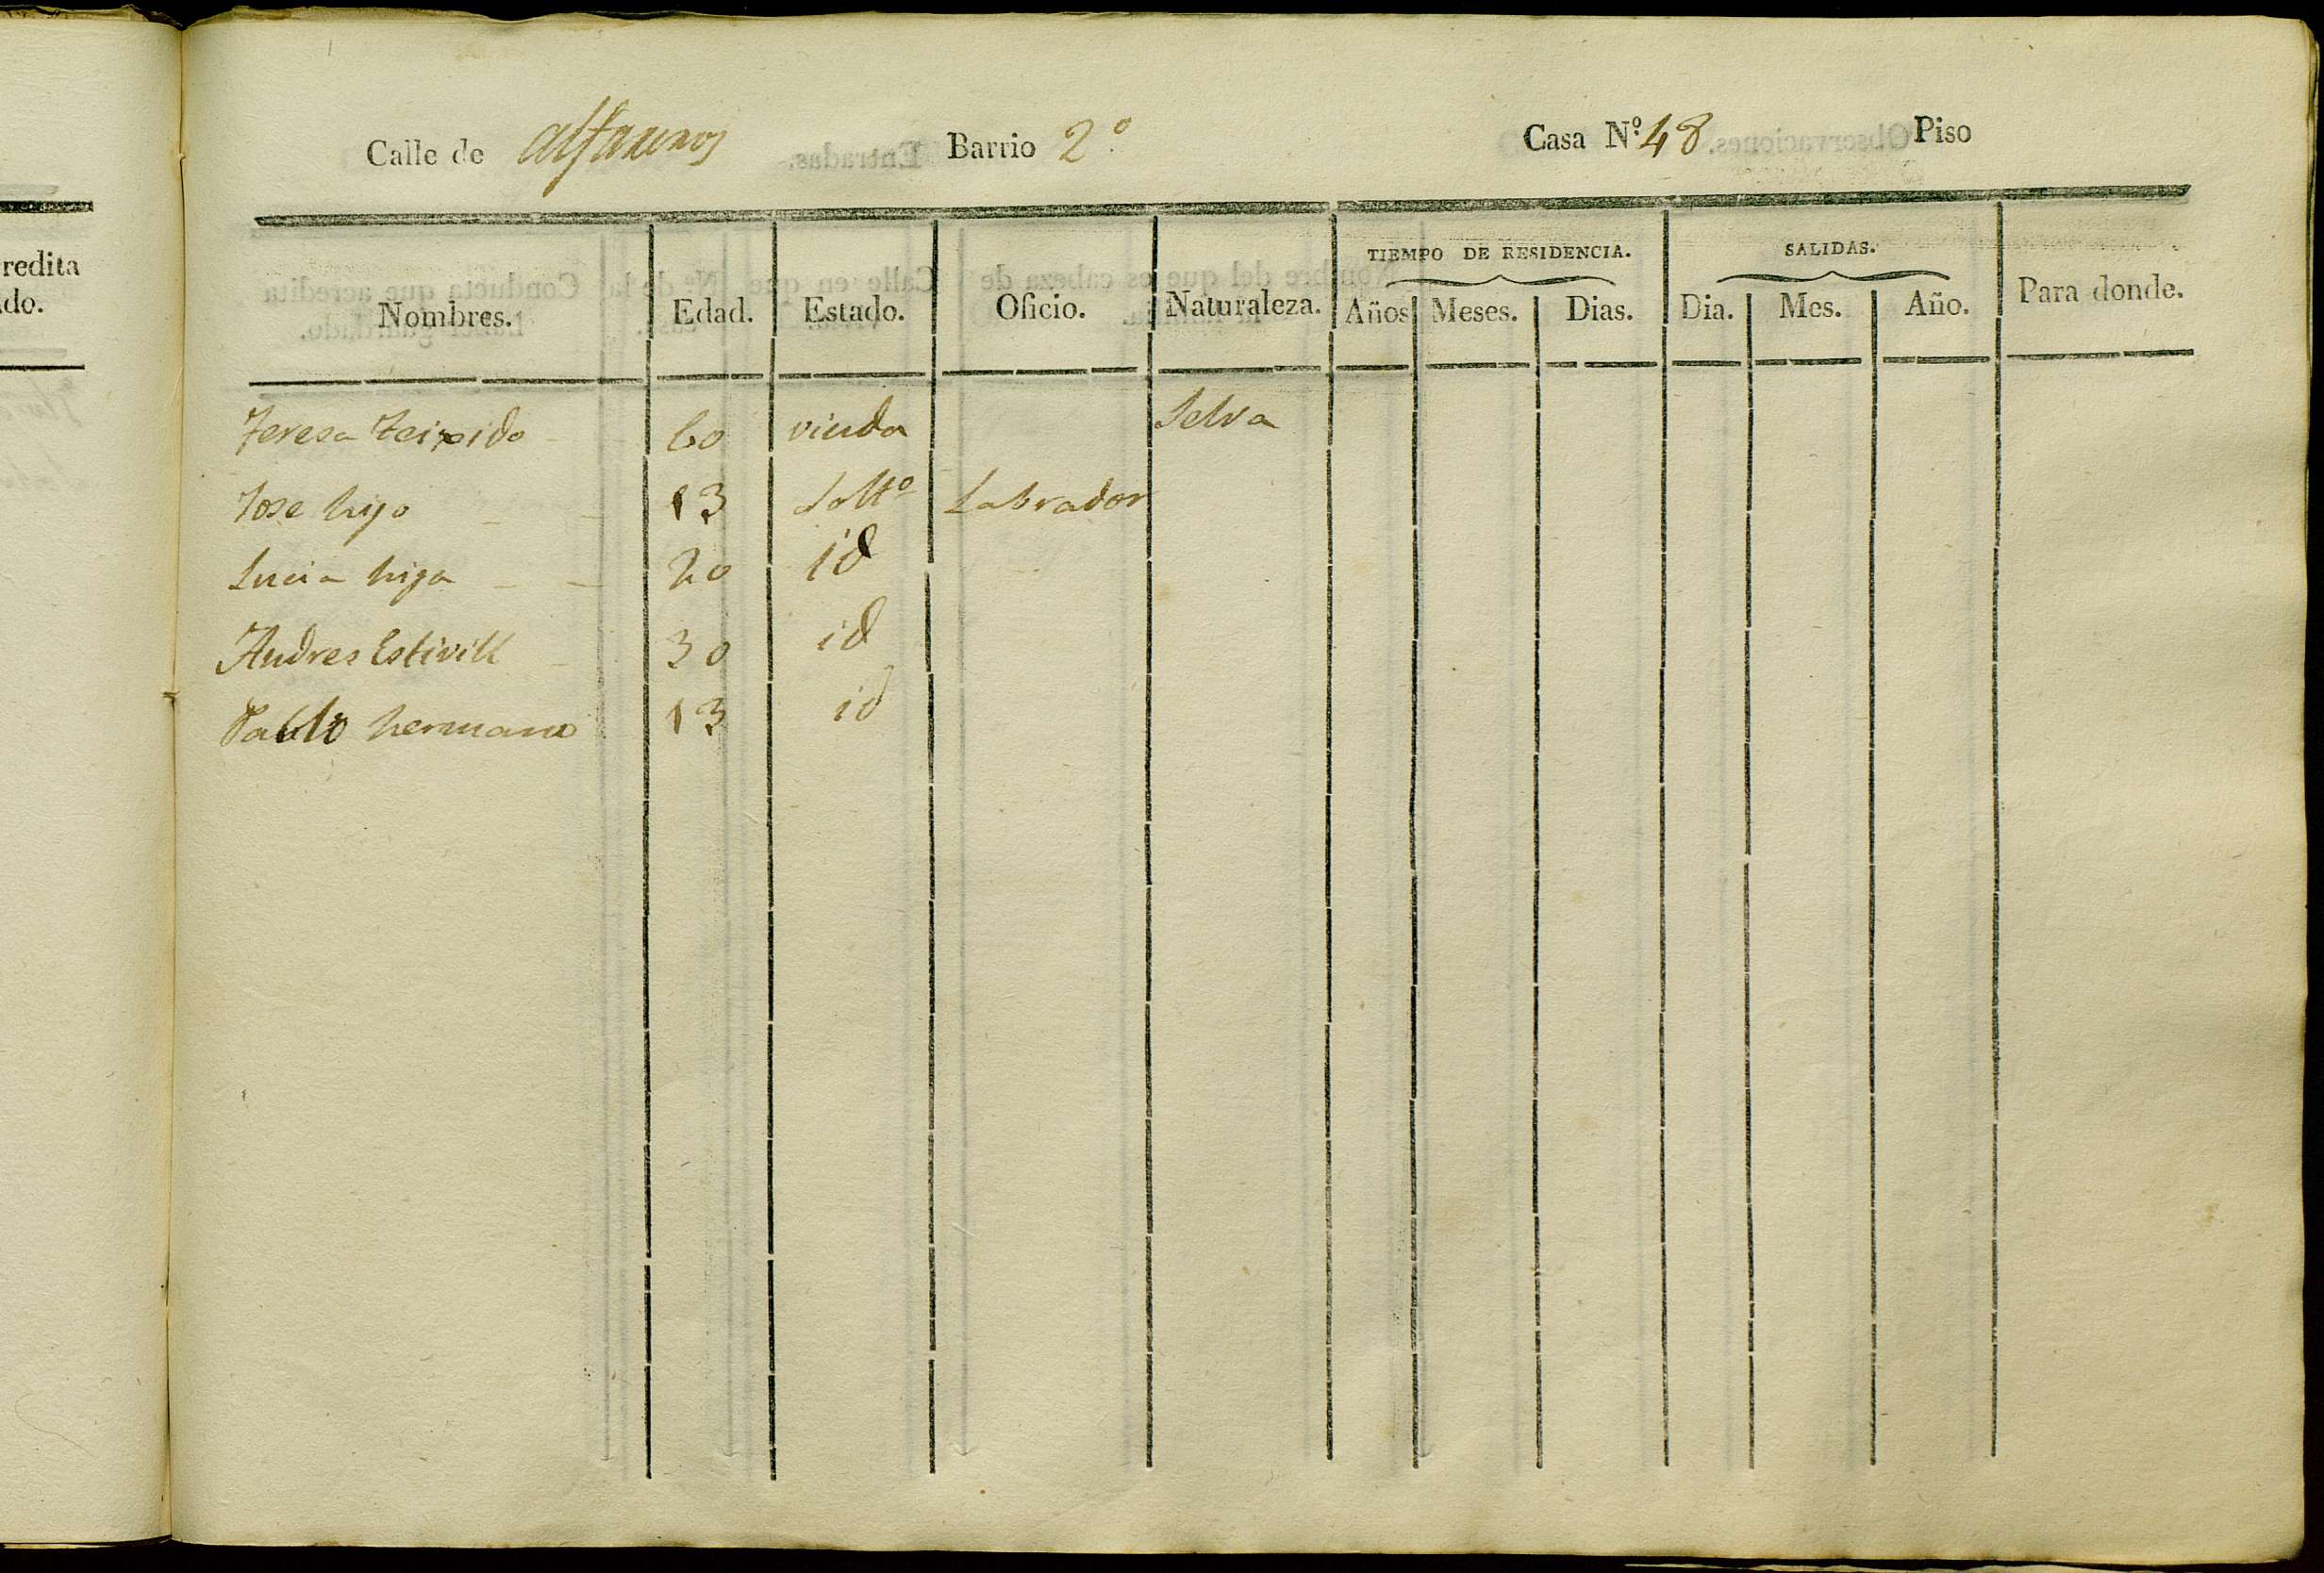 redita
do.
Calle de alfareros Barrio 2.º Casa Nº 48 Piso
TIEMPO DE RESIDENCIA. SALIDAS.
Nombres. Edad. Estado. Oficio. Naturaleza. Años Meses. Dias. Dia. Mes. Año. Para donde.
Teresa Teixido 60 viuda Selva
Jose hijo 13 Soltº Labrador
Lucia hija 20 id
Andres Estivill 30 id
Pablo hermano 13 id